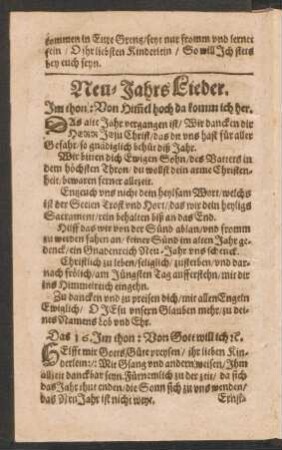 kommen in Ewre Grentz / seyt nur fromm vnd lernet
fein / O jhr liebsten Kinderlein / So will Jch stets
bey euch seyn.
New-Jahrs Lieder.
Im thon: Von Himel hoch da komm ich her.
DAs alte Jahr vergangen ist / Wir dancken dir
HERR Jesu Christ / das du vns hast für aller
Gefahr / so gnädiglich behüt diß Jahr.
Wir bitten dich Ewigen Sohn / des Vatters in
dem höchsten Thron / du wollst dein arme Christen-
heit / bewaren ferner allezeit.
Entzeuch vns nicht dein heylsam Wort / welchs
ist der Seelen Trost vnd Hort / das wir dein heyligs
Sacrament / rein behalten biß an das End.
Hilff das wir von der Sünd ablan / vnd fromm
zu werden fahen an / keiner Sünd im alten Jahr ge-
denck / ein Gnadenreich New-Jahr vns schenck.
Christlich zu leben / seliglich / zusterben / vnd dar-
nach frölich / am Jüngsten Tag aufferstehn / mit dir
ins Himmelreich eingehn.
Zu dancken vnd zu preisen dich / mit allen Engeln
Ewiglich / O JEsu vnsern Glauben mehr / zu dei-
nes Namens Lob vnd Ehr.
Das 16. Im thon: Von Gott will ich ꝛc.
HElfft mir Gotts Güte preysen / jhr lieben Kin-
derlein :/: Mit Gsang vnd andern weisen / Jhm
allzeit danckbar seyn. Fürnemlich zu der zeit / da sich
das Jahr thut enden / die Sonn sich zu vns wenden /
das New Jahr ist nicht weyt.
Ernst-